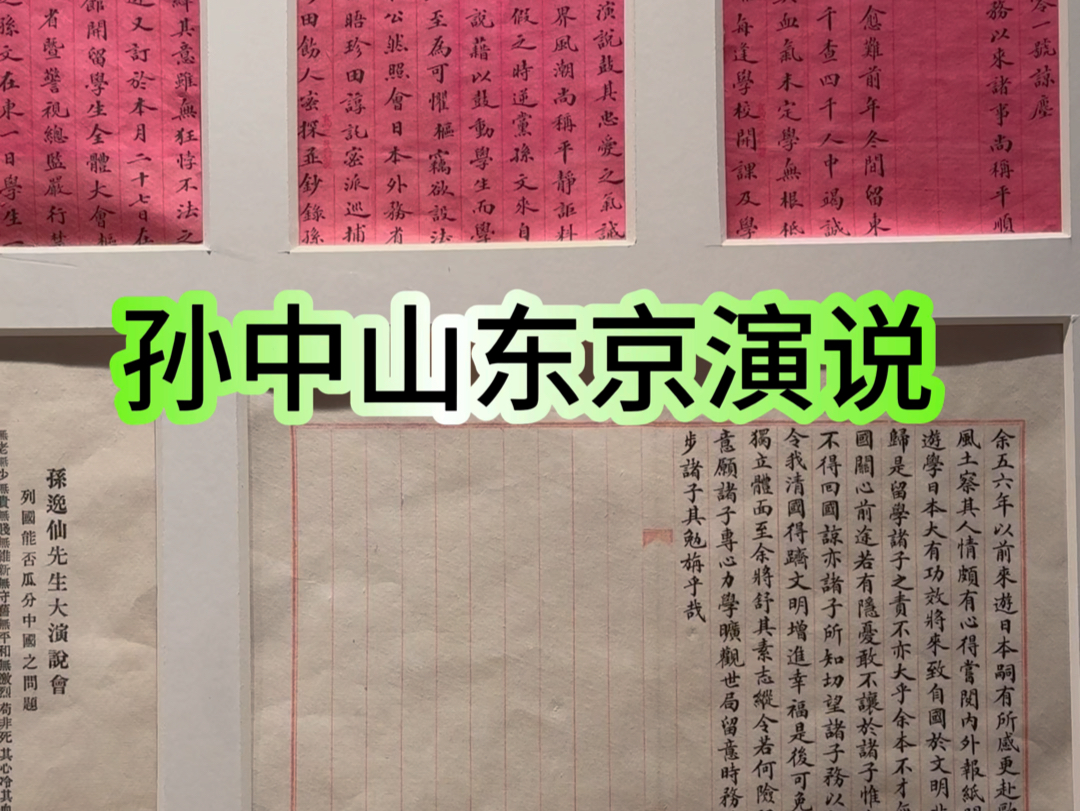 零一號諒塵
務以來諸事尚稱平順
愈難前年冬間留東
千查四千人中竭誠
血氣未定學無根柢
每逢學校開課及學
演說鼓其忠愛之氣誠
界風潮尚稱平靜詎料
假之時逆黨孫文來自
說藉以鼓動學生而學
至為可懼樞竊欲設法
公然照會日本外務省
晤珍田諄託密派巡捕
田飭人密探並鈔錄孫
其意雖無狂悖不法之
又訂於本月二十七日在
開留學生全體大會樞
者暨警視總監嚴行禁
孫文在東一日學生一
孙中山东京演说
余五六年以前來遊日本嗣有所感更赴
風土察其人情頗有心得嘗閱內外報紙
遊學日本大有功效將來致自國於文明
歸是留學諸子之責不亦大乎余本不才
國關心前途若有隱憂敢不讓於諸子惟
不得回國諒亦諸子所知切望諸子務以
令我清國得躋文明增進幸福是後可免
獨立體面至余將舒其素志縱令若何險
意願諸子專心力學曠觀世局留意時務
步諸子其勉旃乎哉
孫逸仙先生大演說會
列國能否瓜分中國之問題
無老無少無貴無賤無維新無守舊無平和無激烈苟非死其心冷其血